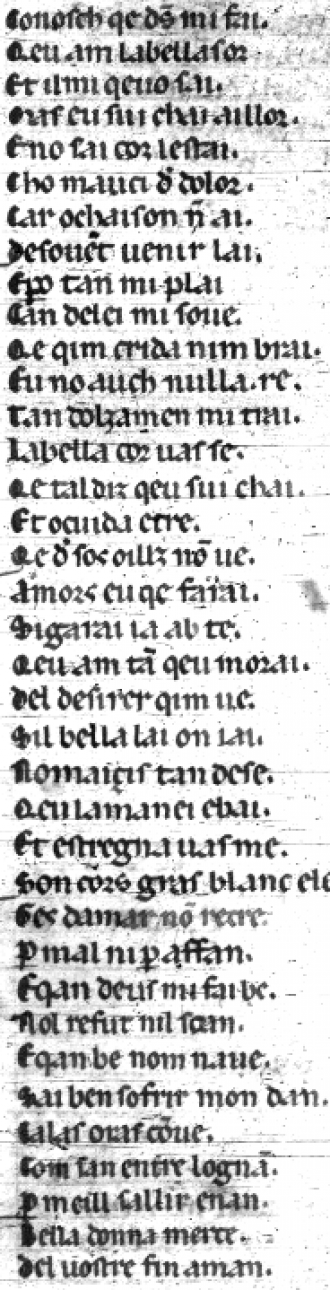 Conosch qe d̄s mi fai.
Qeu am labellasor
Et ilmi qeuo sai.
Oras eu sui chai aillor.
E no sai cor lestai.
Cho mauci d̄ dolor.
Car ochaison n̄ ai.
Desouēt uenir lai.
Epo tan mi plai
Can delei mi soue.
Qe qim crida nim brai.
Eu no auch nulla re.
Tan dolzamen mi trai.
Labella cor uas se.
Qe tal diz qeu sui chai.
Et ocuida e cre.
Qe d̄ sos oillz nō ue.
Amors eu qe farai.
Sigarai ia ab te.
Qeu am tā qeu morai.
Del desirer qim ue.
Sil bella lai on iai.
No maigis tan dese.
Qeu la manei e bai.
Et estregna uas me.
Son cors gras blanc ele
Ges damar nō recre.
P mal ni p affan.
E qan deus mi fai be.
Nol refut nil soan.
E qan be nom n aue.
Sai ben sofrir mon dan.
Calas oras cōue.
Com san entre lognā.
P meill sallir enan.
Bella donna merce.
Del uostre fin aman.